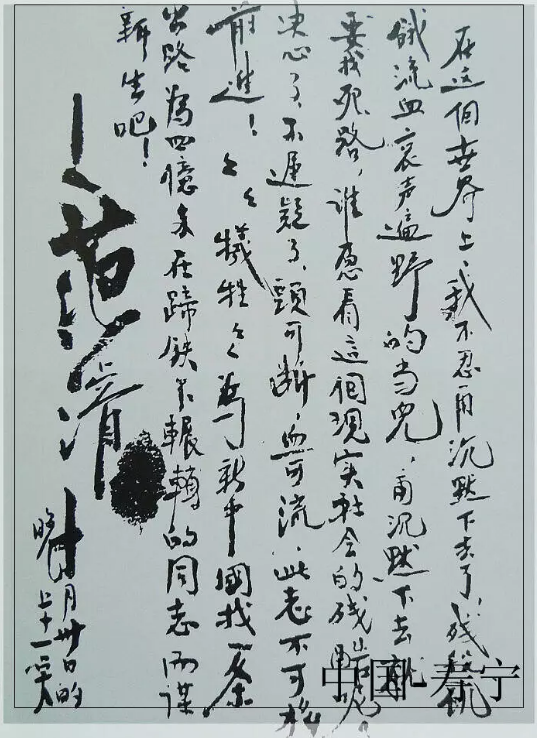 在这個世界上、我不忍再沉默下去了，残殺飢
餓流血哀声遍野的当兒，再沉默下去就
要找死路，谁愿看這個現实社会的残酷呢
决心了，不遲疑了，頭可断，血可流，此志不可移
前進！々々犧牲々々為了新中國找一条
出路為四億多在蹄鉄下輾轉的同志而谋
新生吧！
范
十月卅日的
晚上十一
中国·寿宁